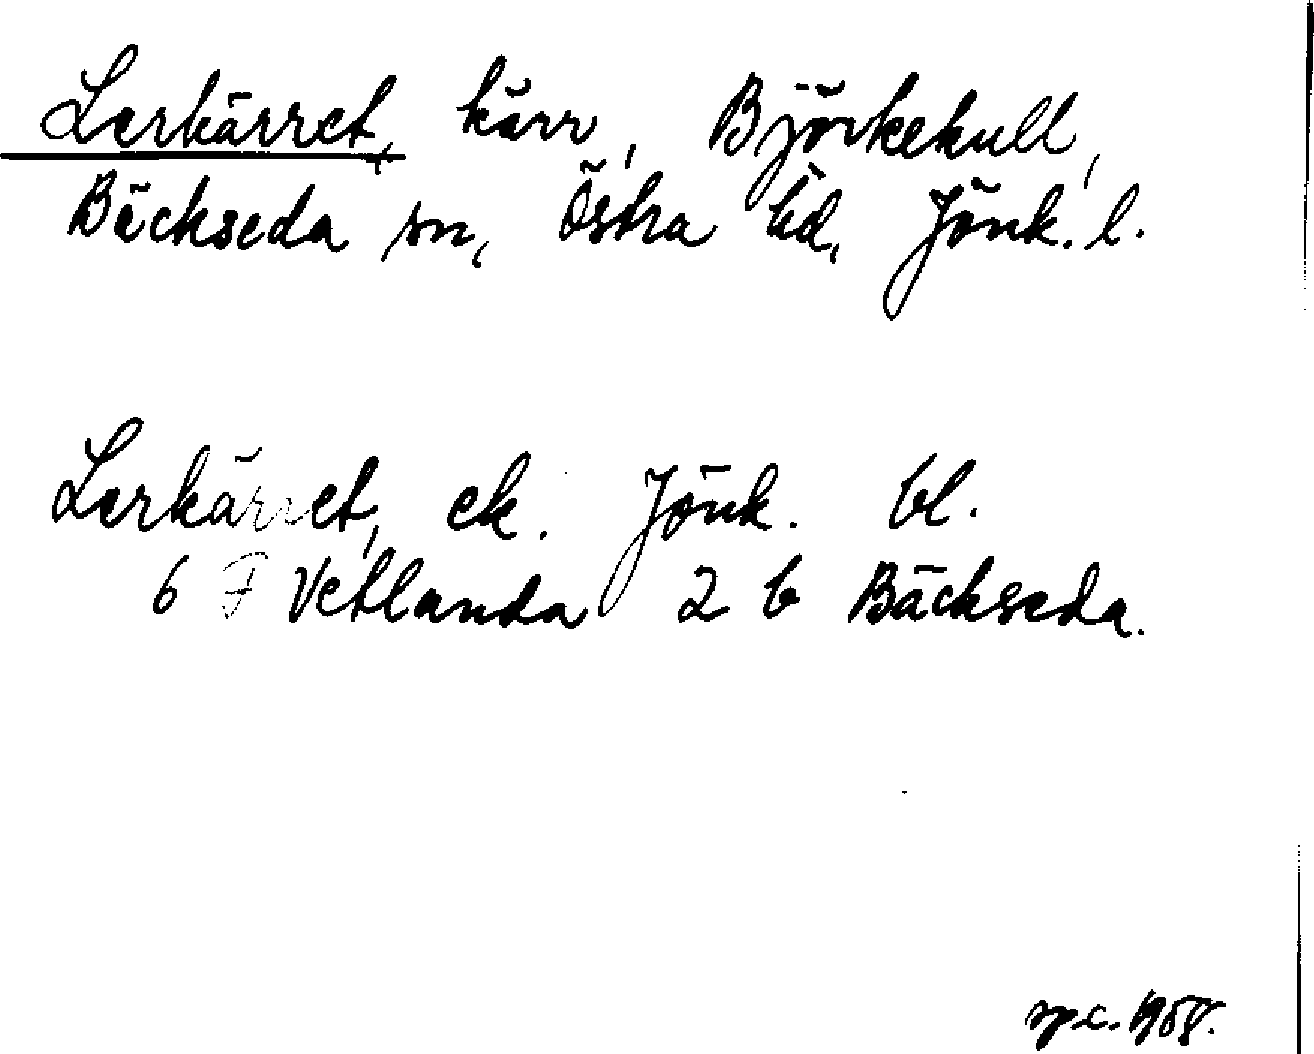 Lerkärret, kärr, Björkekull,
Bäckseda sn, Östra hd, Jönk. l.
Lerkärret, ek. Jönk. bl.
6 F Vetlanda 2 b Bäckseda.
1958.